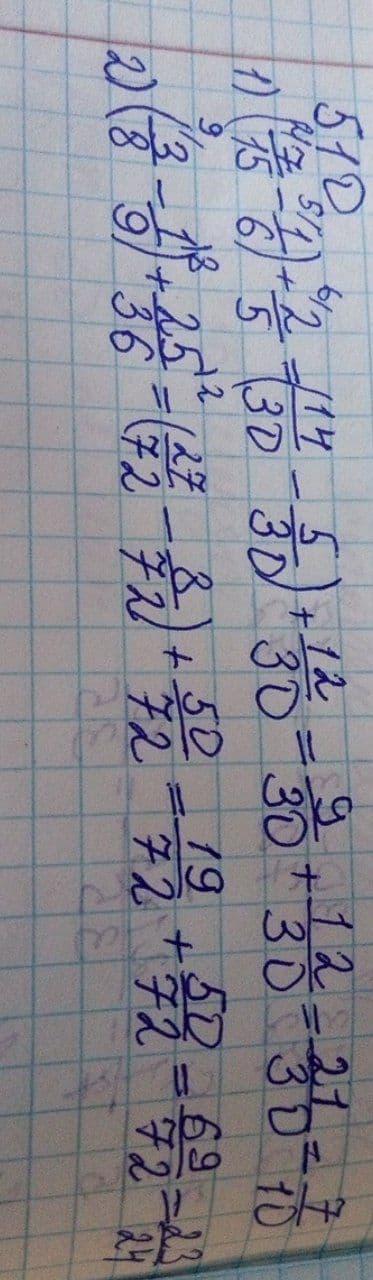 510
1) (7/15 - 1/6) + 2/5 = (14/30 - 5/30) + 12/30 = 9/30 + 12/30 = 21/30 = 7/10
2) (3/8 - 1/9) + 25/36 = (27/72 - 8/72) + 50/72 = 19/72 + 50/72 = 69/72 = 23/24